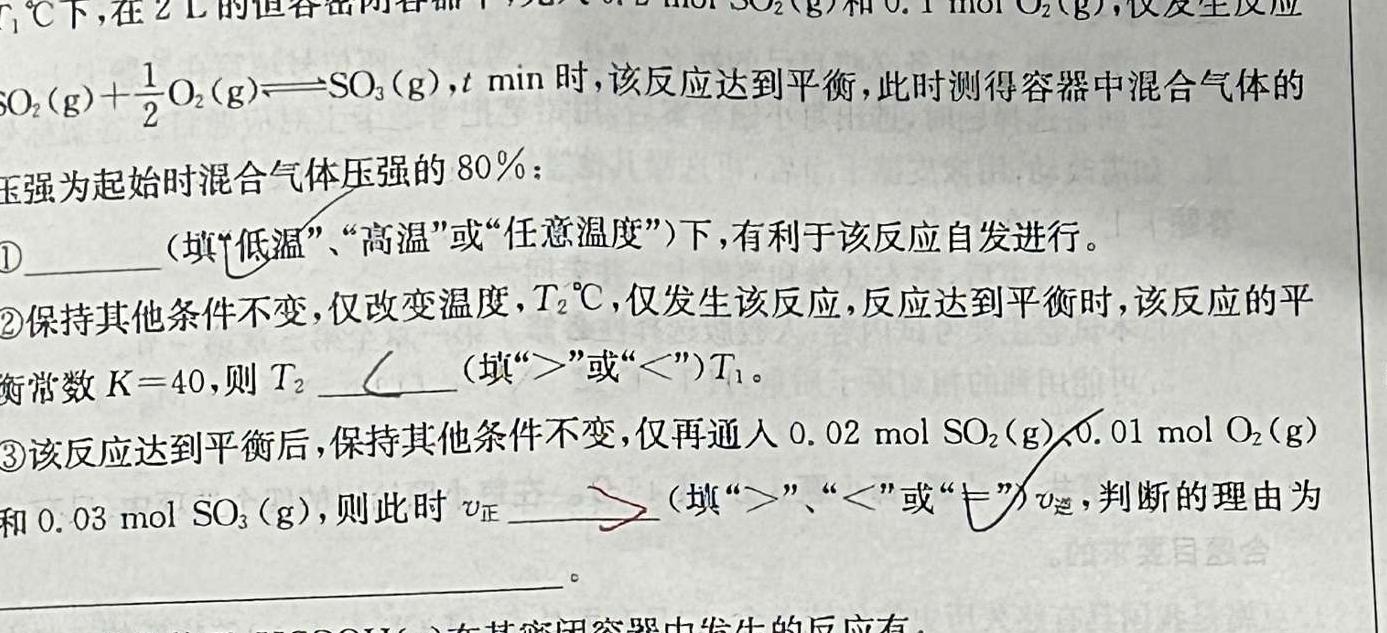 ℃下,在 2 L 的恒容密闭容器中,充入 0.2 mol SO₂(g)和 0.1 mol O₂(g),仅发生反应
SO₂(g)+1/2O₂(g)⇌SO₃(g),t min 时,该反应达到平衡,此时测得容器中混合气体的
压强为起始时混合气体压强的 80%:
①________(填“低温”、“高温”或“任意温度”)下,有利于该反应自发进行。
②保持其他条件不变,仅改变温度,T₂℃,仅发生该反应,反应达到平衡时,该反应的平
衡常数 K=40,则 T₂ <(填“>”或“<”)T₁。
③该反应达到平衡后,保持其他条件不变,仅再通入 0.02 mol SO₂(g)、0.01 mol O₂(g)
和 0.03 mol SO₃(g),则此时 v正 >(填“>”、“<”或“=”)v逆,判断的理由为
________。
在某密闭容器中发生的反应有: